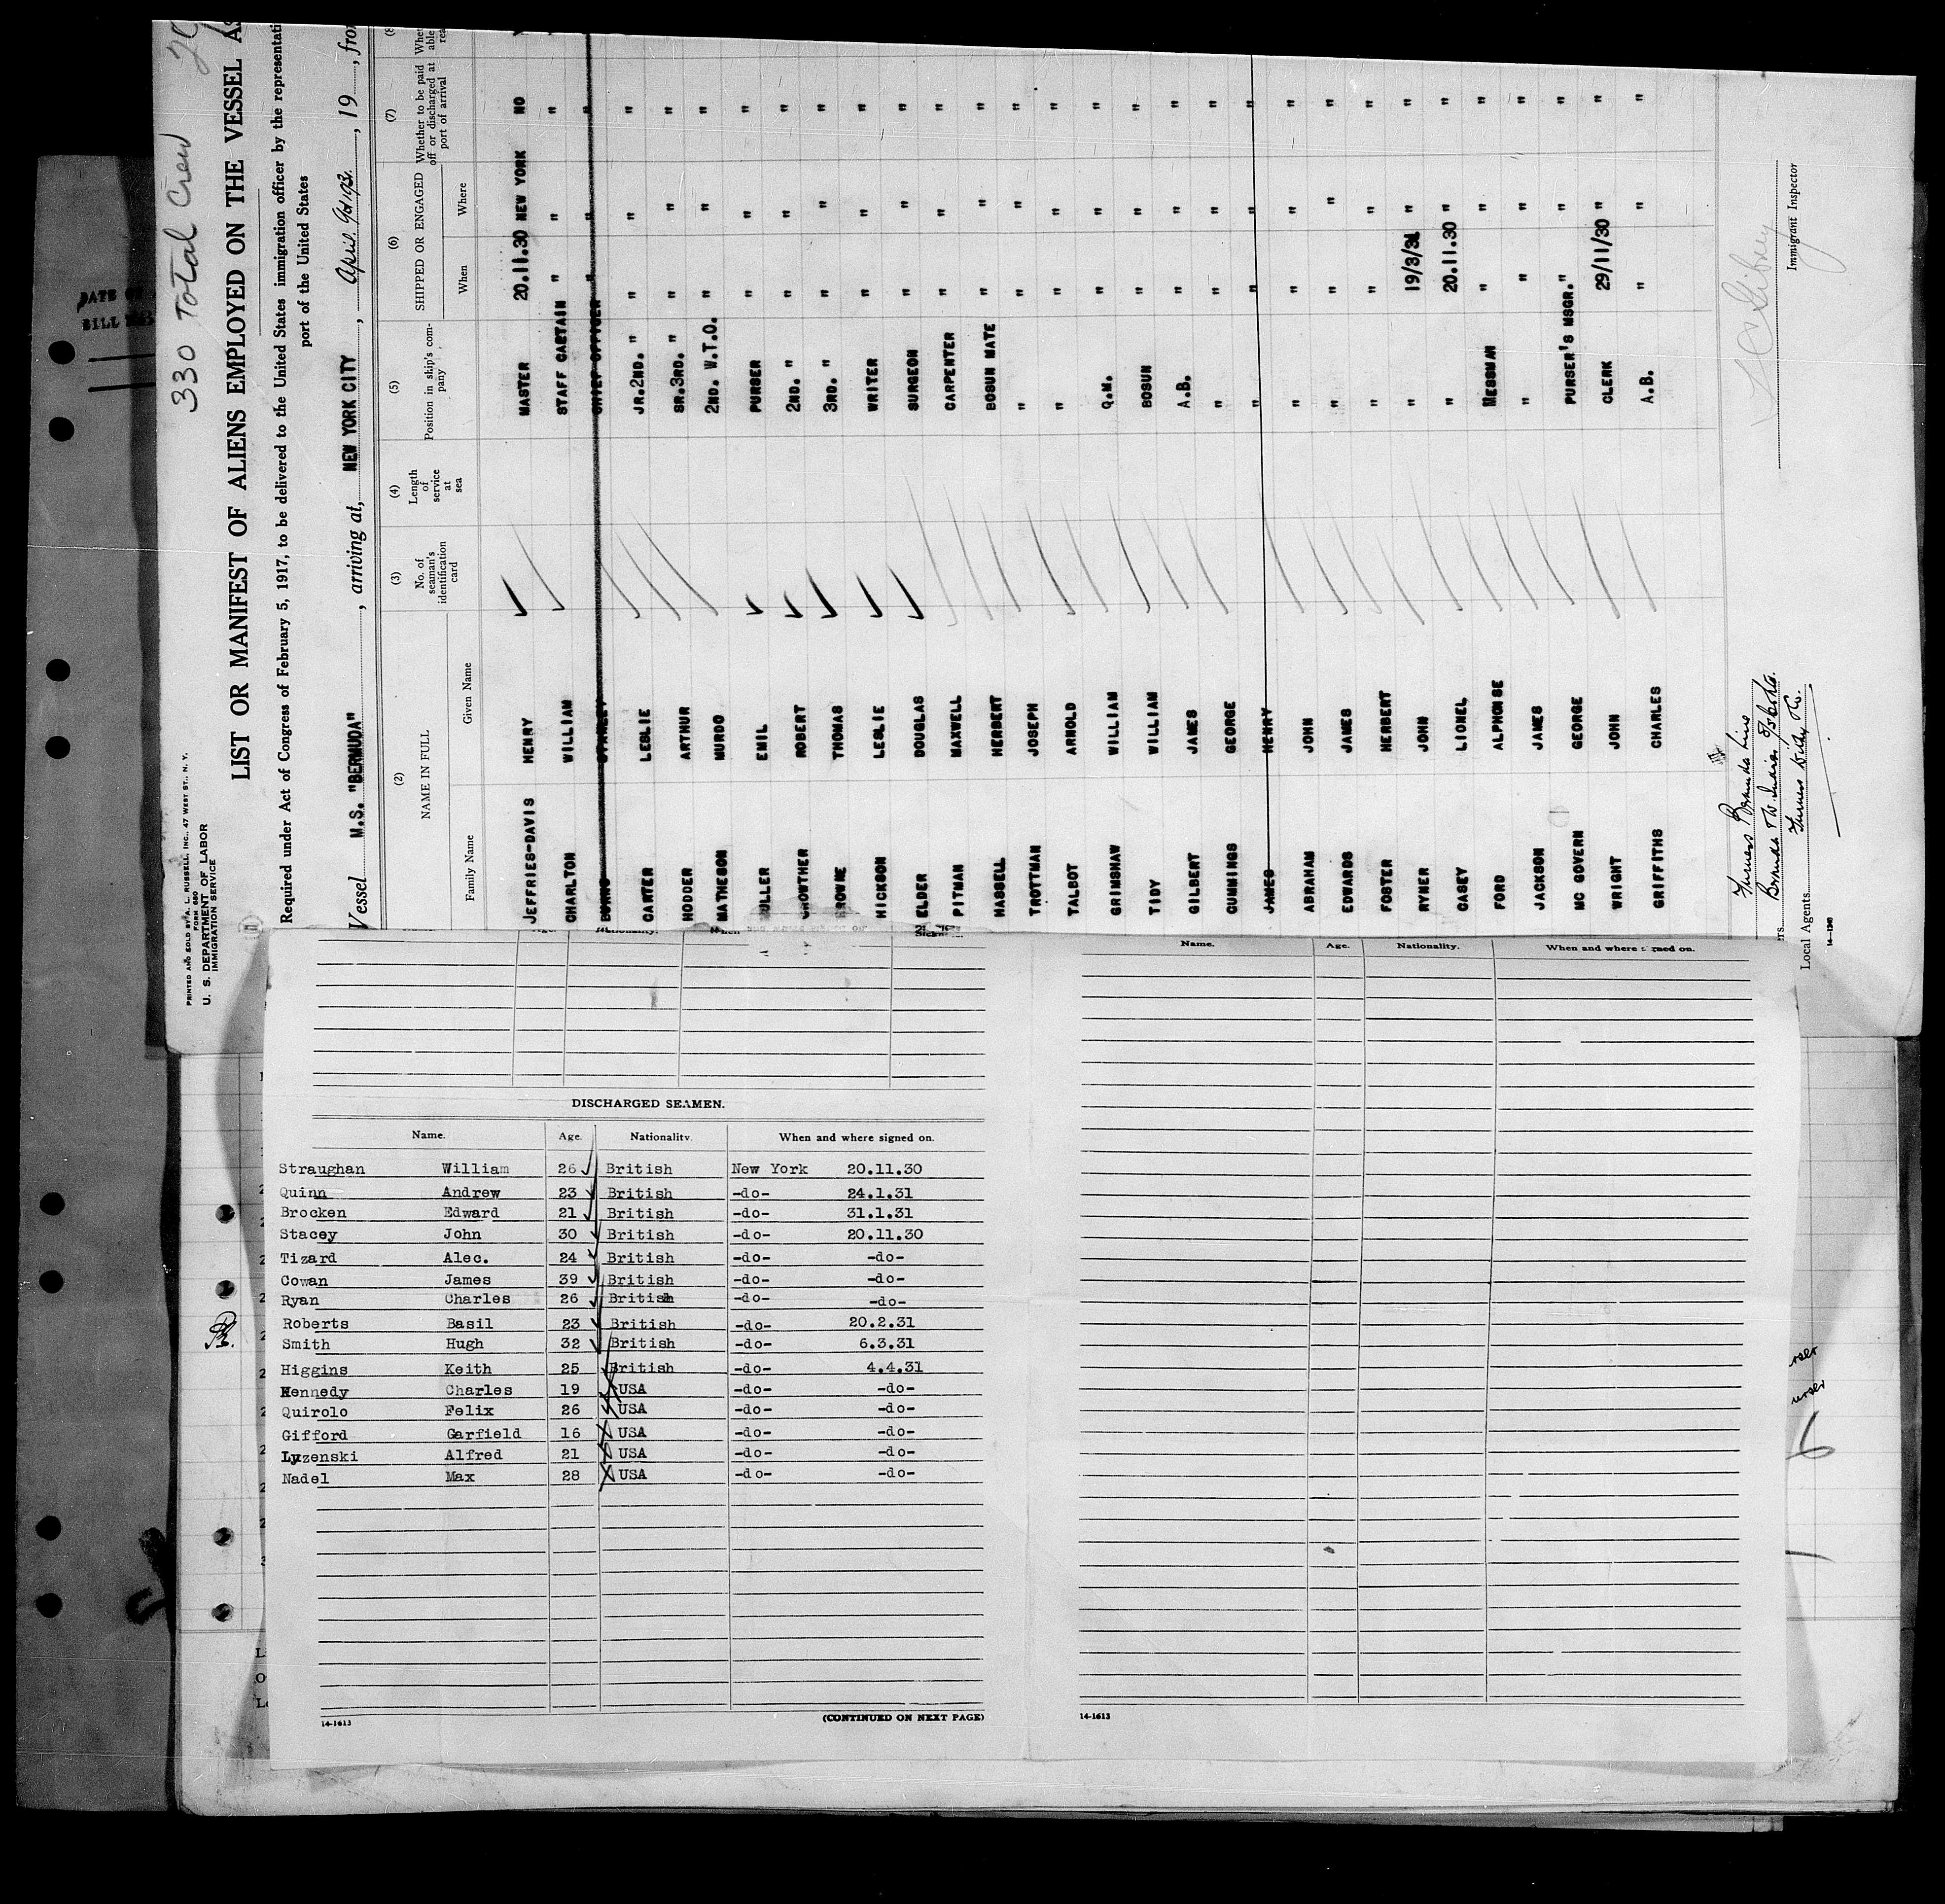 330 Total Crew
PRINTED AND SOLD BY A. L. RUSSELL, INC., 47 WEST ST., N. Y.
FORM 680
U. S. DEPARTMENT OF LABOR
IMMIGRATION SERVICE
LIST OR MANIFEST OF ALIENS EMPLOYED ON THE VESSEL AS
Required under Act of Congress of February 5, 1917, to be delivered to the United States immigration officer by the representati
port of the United States
Vessel M.S. "BERMUDA", arriving at, NEW YORK CITY, April 9th 1931, 19, from
(2) (3) (4) (5) (6) (7)
NAME IN FULL No. of seaman's identification card Length of service at sea Position in ship's company SHIPPED OR ENGAGED Whether to be paid off or discharged at port of arrival
Family Name Given Name When Where
JEFFRIES-DAVIS HENRY MASTER 20.11.30 NEW YORK NO
CHARLTON WILLIAM STAFF CAPTAIN " " "
BURNS STANLEY CHIEF OFFICER " " "
CARTER LESLIE JR.2ND. " " " "
HODDER ARTHUR SR.3RD. " " " "
MATHESON MURDO 2ND. W.T.O. " " "
EMIL PURSER " " "
CROWTHER ROBERT 2ND. " " " "
BROWNE THOMAS 3RD. " " " "
HICKSON LESLIE WRITER " " "
ELDER DOUGLAS SURGEON " " "
PITMAN MAXWELL CARPENTER " " "
HASSELL HERBERT BOSUN MATE " " "
TROTTMAN JOSEPH " " " "
TALBOT ARNOLD " " " "
GRIMSHAW WILLIAM Q.M. " " "
TIDY WILLIAM BOSUN " " "
GILBERT JAMES A.B. " " "
CUMMINGS GEORGE " " " "
JAMES HENRY " " " "
ABRAHAM JOHN " " " "
EDWARDS JAMES " " " "
FOSTER HERBERT " " " "
RYMER JOHN " 19/3/31 " "
CASEY LIONEL " 20.11.30 " "
FORD ALPHONSE MESSMAN " " "
JACKSON JAMES " " " "
MC GOVERN GEORGE PURSER'S MSGR. " " "
WRIGHT JOHN CLERK 29/11/30 " "
GRIFFITHS CHARLES A.B. " " "
Furness Bermuda Line
Local Agents Furness Withy Co.
Immigrant Inspector
14-1240
Name. Age. Nationality. When and where signed on.
DISCHARGED SEAMEN.
Name. Age. Nationality. When and where signed on.
Straughan William 26 British New York 20.11.30
Quinn Andrew 23 British -do- 24.1.31
Brocken Edward 21 British -do- 31.1.31
Stacey John 30 British -do- 20.11.30
Tizard Alec. 24 British -do- -do-
Cowan James 39 British -do- -do-
Ryan Charles 26 British -do- -do-
Roberts Basil 23 British -do- 20.2.31
Smith Hugh 32 British -do- 6.3.31
Higgins Keith 25 British -do- 4.4.31
Kennedy Charles 19 USA -do- -do-
Quirolo Felix 26 USA -do- -do-
Gifford Garfield 16 USA -do- -do-
Lyzenski Alfred 21 USA -do- -do-
Nadel Max 28 USA -do- -do-
14-1613 (CONTINUED ON NEXT PAGE)
14-1613